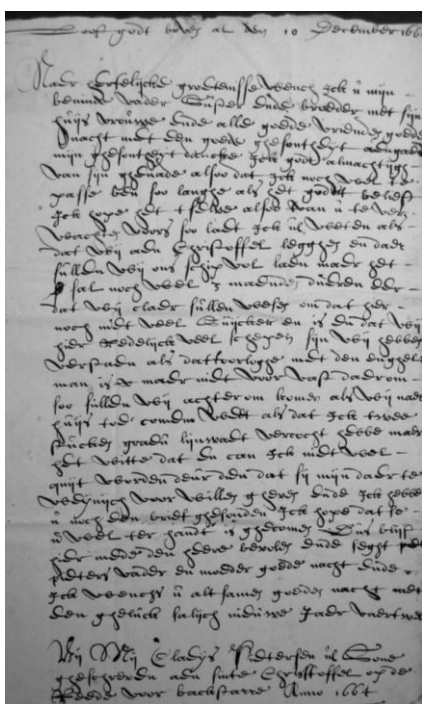 Loof godt boven al den 10 December 1664
Naer Erfelijcke groetenisse wensch Ick u mijn
beminde vader Suster ende broeder met sijn
huijs vrouwe ende alle goede vrienden goede
nacht met den goede ghesontheyt aengaende
mijn ghesontheyt dancke Ick godt almachtigh
van sijn ghenade alsoo dat Ick noch wel te
passe ben soo langhe als het godt belieft
Ick hope het selve alsoo van u te ver
wachten voorts soo laet Ick ul weten als
dat wij aen Christoffel legghen en daer
sullen wij ons schip vol laden maer het
sal noch wel 3 maenden dueren eer
dat wij claer sullen wesen om dat hier
noch niet veel Suijcker en is en dat wij
hier Redelijck veel schepen sijn wij hebben
verstaen als dat oorloghe met den enghels
man is maer niet voor vast daerom
soo sullen wij achterom komen als wij naer
huijs toe comen weet als dat Ick twee
stucken graeu lijnwadt vercocht hebbe maer
het witte dat en can Ick niet wel
quijt worden deur dien dat sij mijn daer te
weijnich voor willen gheven ende Ick hebbe
u noch den brief ghesonden Ick hope dat se
u wel ter handt is ghecomen Dus blijf
hier mede den heere bevolen ende seght
pieters vader en moeder goede nacht ende
Ick wensch u al t samen goeden nacht met
den gheluck salich nieuwe Jaer vaert wel
Bij Mij Claeijs Pietersen ul Sone
gheschreven aen sinte Christoffel op de
Reede voor backstarre Anno 1664